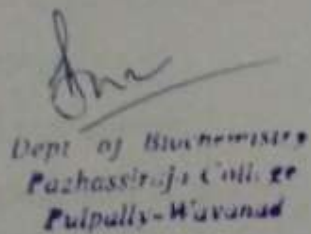 Dept of Biochemistry
Pazhassiraja College
Pulpally-Wayanad